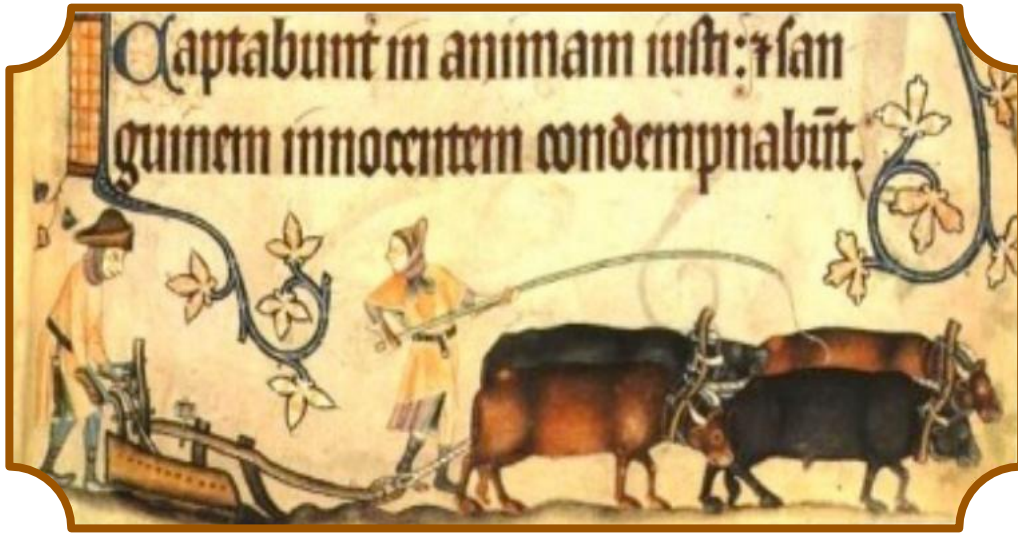 Captabunt in animam iusti: ⁊ san
guinem innocentem condempnabūt.